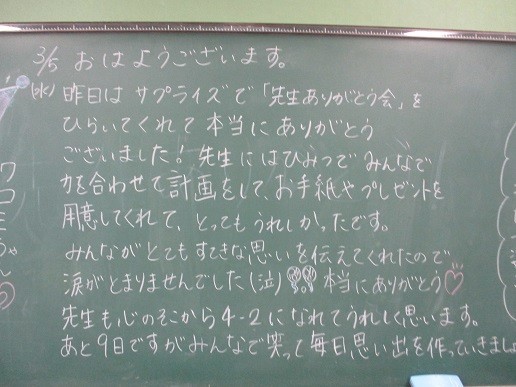 3/5 おはようございます。
(水) 昨日は サプライズで「先生ありがとう会」を
ひらいてくれて本当にありがとう
ございました！先生にはひみつでみんなで
力を合わせて計画をして、お手紙やプレゼントを
用意してくれて、とってもうれしかったです。
みんながとてもすてきな思いを伝えてくれたので
涙がとまりませんでした(泣) 本当にありがとう♡
先生も心のそこから4-2になれてうれしく思います。
あと9日ですがみんなで笑って毎日思い出を作っていきましょ